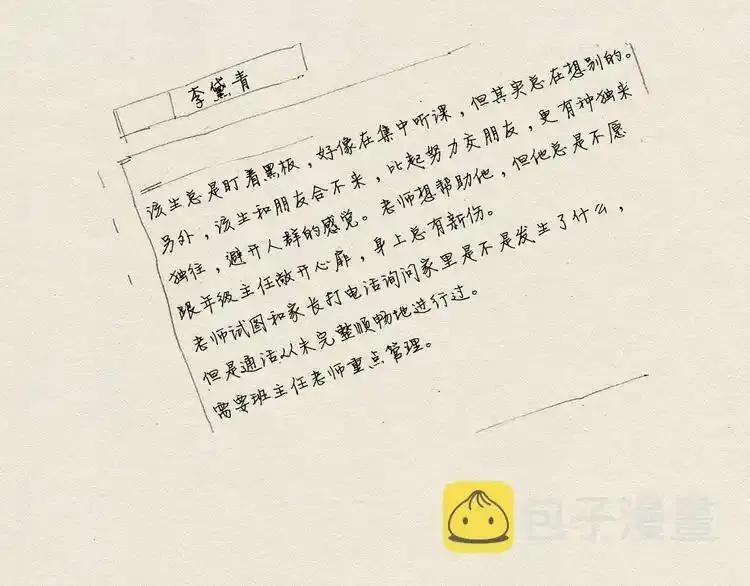 李黛青
该生总是盯着黑板，好像在集中听课，但其实总在想别的。
另外，该生和朋友合不来，比起努力交朋友，更有种独来
独往，避开人群的感觉。老师想帮助他，但他总是不愿
跟年级主任敞开心扉，身上总有新伤。
老师试图和家长打电话询问家里是不是发生了什么，
但是通话从未完整顺畅地进行过。
需要班主任老师重点管理。
包子漫畫